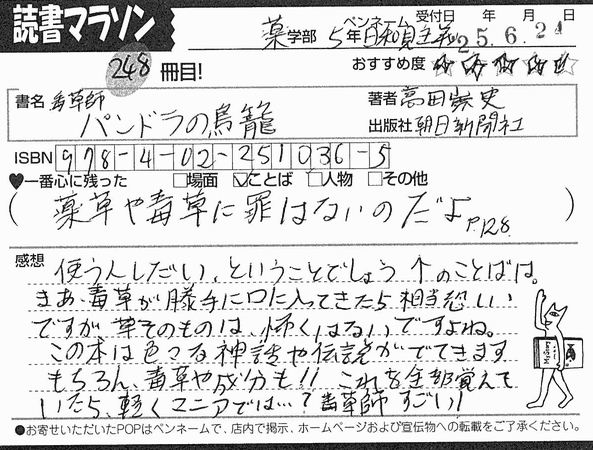 読書マラソン
薬学部 5年 ペンネーム 日和見主義 受付日 年 月 日
25.6.24
248冊目!
おすすめ度 ☆☆☆☆☆
書名 毒草師
パンドラの鳥籠
著者 高田崇史
出版社 朝日新聞社
ISBN 978-4-02-251036-5
♥一番心に残った □場面 ☑ことば □人物 □その他
(薬草や毒草に罪はないのだよ P.128)
感想 使う人しだい、ということでしょう ↑のことばは。
まあ、毒草が勝手に口に入ってきたら相当恐しい
ですが 草そのものは、怖くはないですよね。
この本は色々な神話や伝説がでてきます
もちろん、毒草や成分も!! これを全部覚えて
いたら、軽くマニアでは…? 毒草師 すごい!
●お寄せいただいたPOPはペンネームで、店内で掲示、ホームページおよび宣伝物への転載をご了承ください。